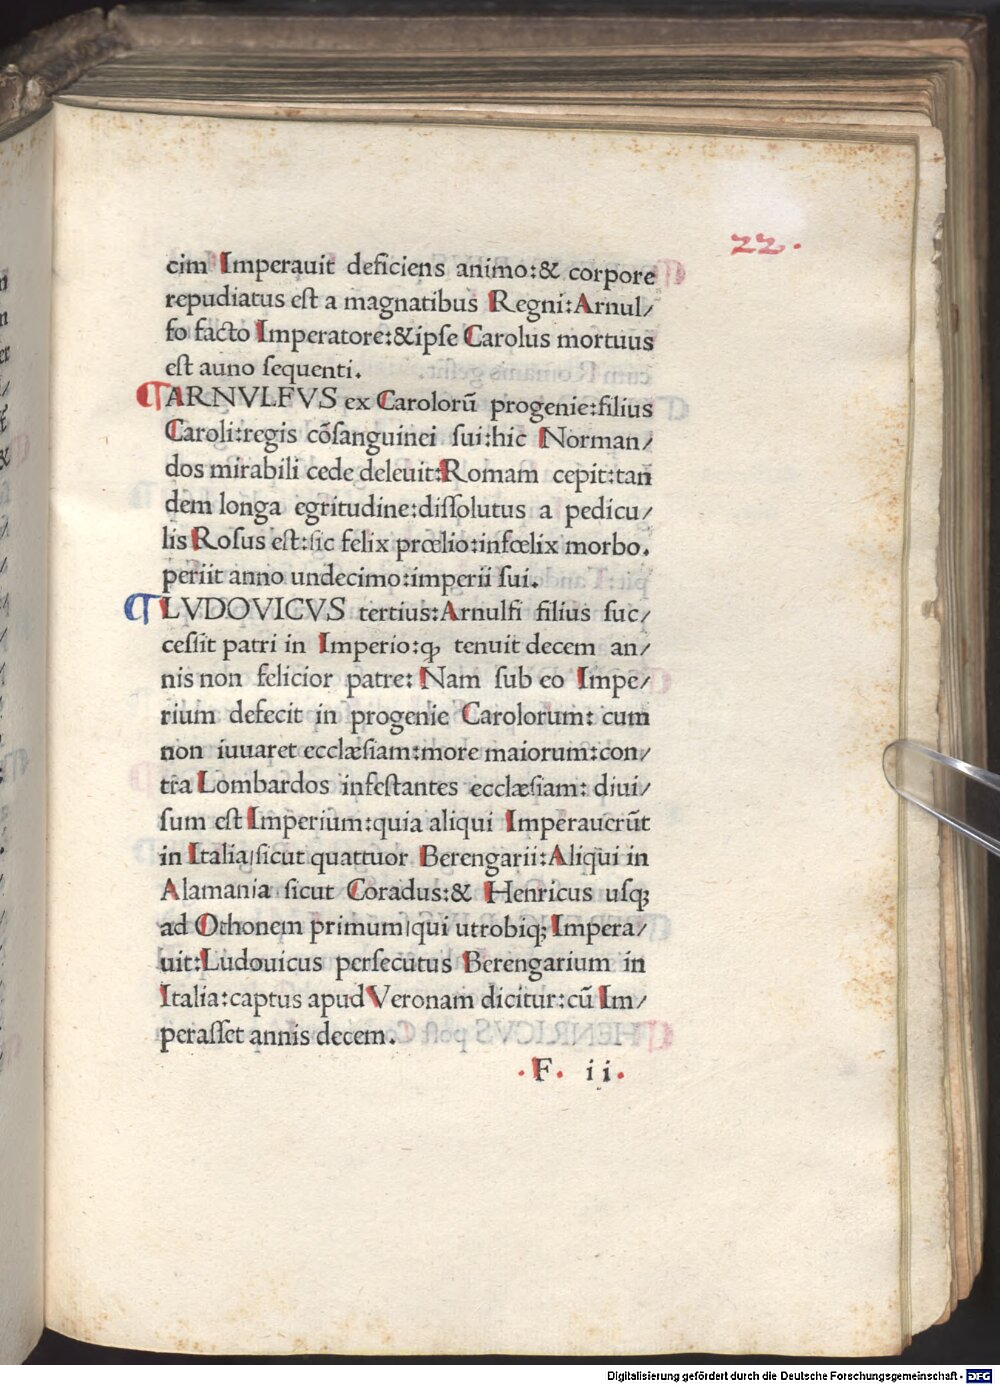 22.
cim Imperauit deficiens animo:& corpore
repudiatus est a magnatibus Regni:Arnul/
fo facto Imperatore:&ipse Carolus mortuus
est auno sequenti.
¶ARNVLFVS ex Carolorū progenie:filius
Caroli:regis cōsanguinei sui:hic Norman/
dos mirabili cede deleuit:Romam cepit:tan
dem longa egritudine:dissolutus a pedicu/
lis Rosus est:sic felix prœlio:infœlix morbo.
periit anno undecimo:imperii sui.
¶LVDOVICVS tertius:Arnulfi filius suc/
cessit patri in Imperio:qꝫ tenuit decem an/
nis non felicior patre: Nam sub eo Impe/
rium defecit in progenie Carolorum: cum
non iuuaret ecclæsiam:more maiorum:con/
tra Lombardos infestantes ecclæsiam: diui/
sum est Imperium:quia aliqui Imperauerūt
in Italia|sicut quattuor Berengarii:Aliqui in
Alamania sicut Coradus:& Henricus usqꝫ
ad Othonem primum|qui utrobiqꝫ Impera/
uit:Ludouicus persecutus Berengarium in
Italia:captus apud Veronam dicitur:cū Im/
perasset annis decem.
.F. ii.
Digitalisierung gefördert durch die Deutsche Forschungsgemeinschaft - DFG